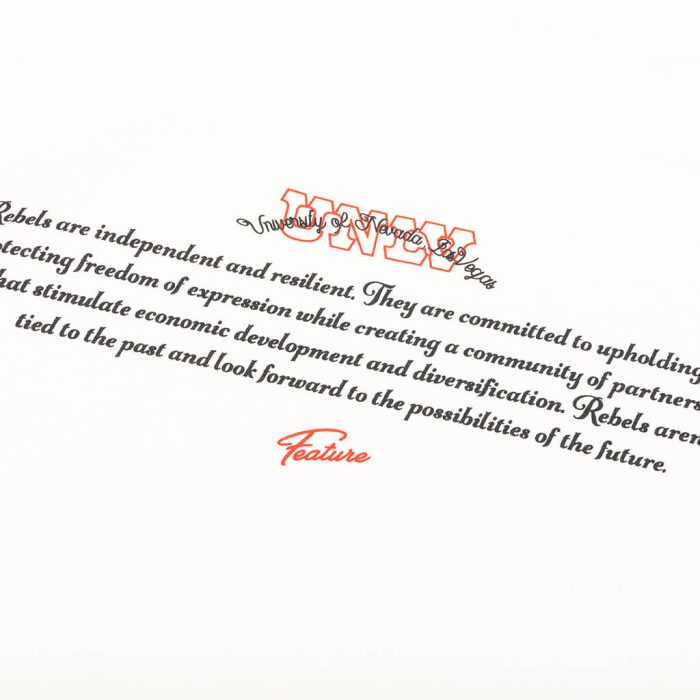 UNLV
University of Nevada, Las Vegas
Rebels are independent and resilient. They are committed to upholding
otecting freedom of expression while creating a community of partners
hat stimulate economic development and diversification. Rebels aren
tied to the past and look forward to the possibilities of the future.
Feature